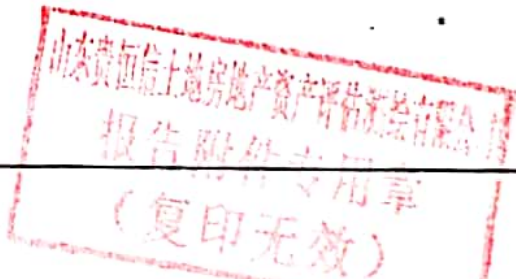 山东贵恒信土地房地产资产评估测绘有限公司
报告附件专用章
（复印无效）